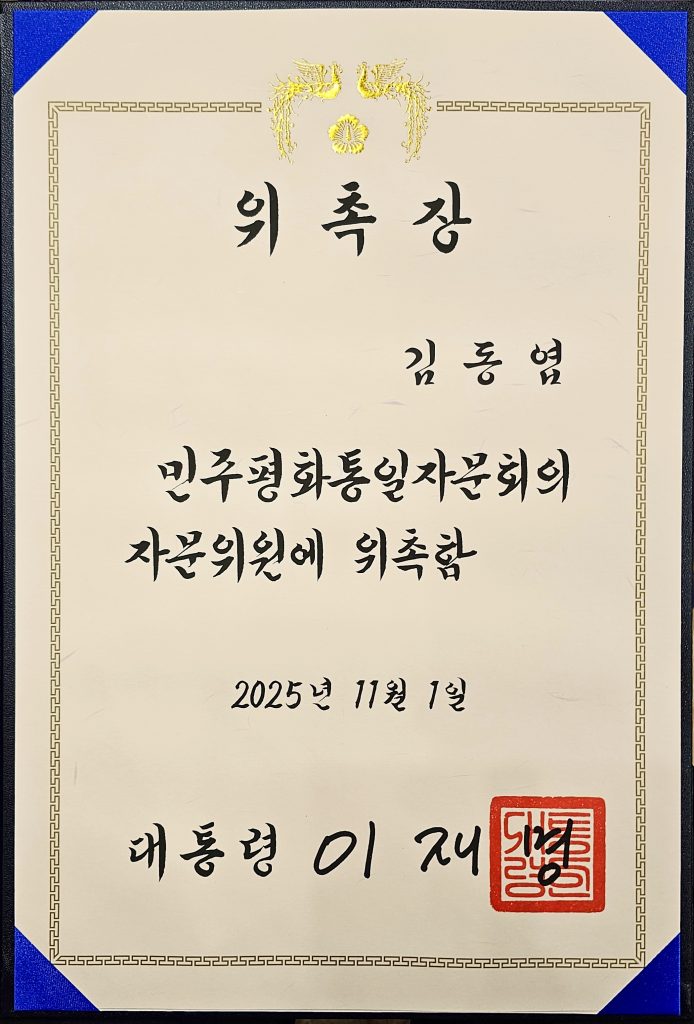 위촉장
김동염
민주평화통일자문회의
자문위원에 위촉함
2025년 11월 1일
대통령 이재명
대통령인